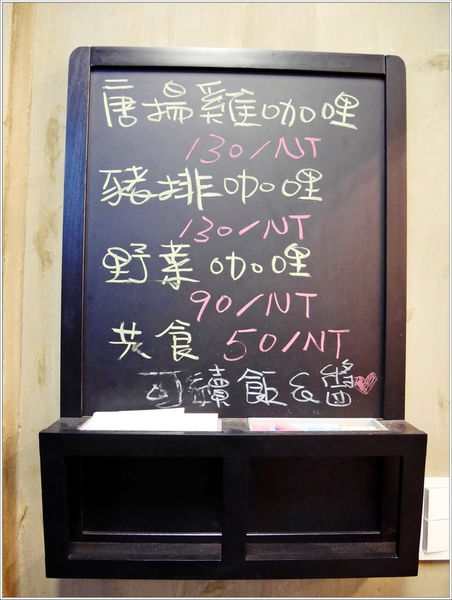 唐揚雞咖哩
130/NT
豬排咖哩
130/NT
野菜咖哩
90/NT
共食 50/NT
可續飯&醬